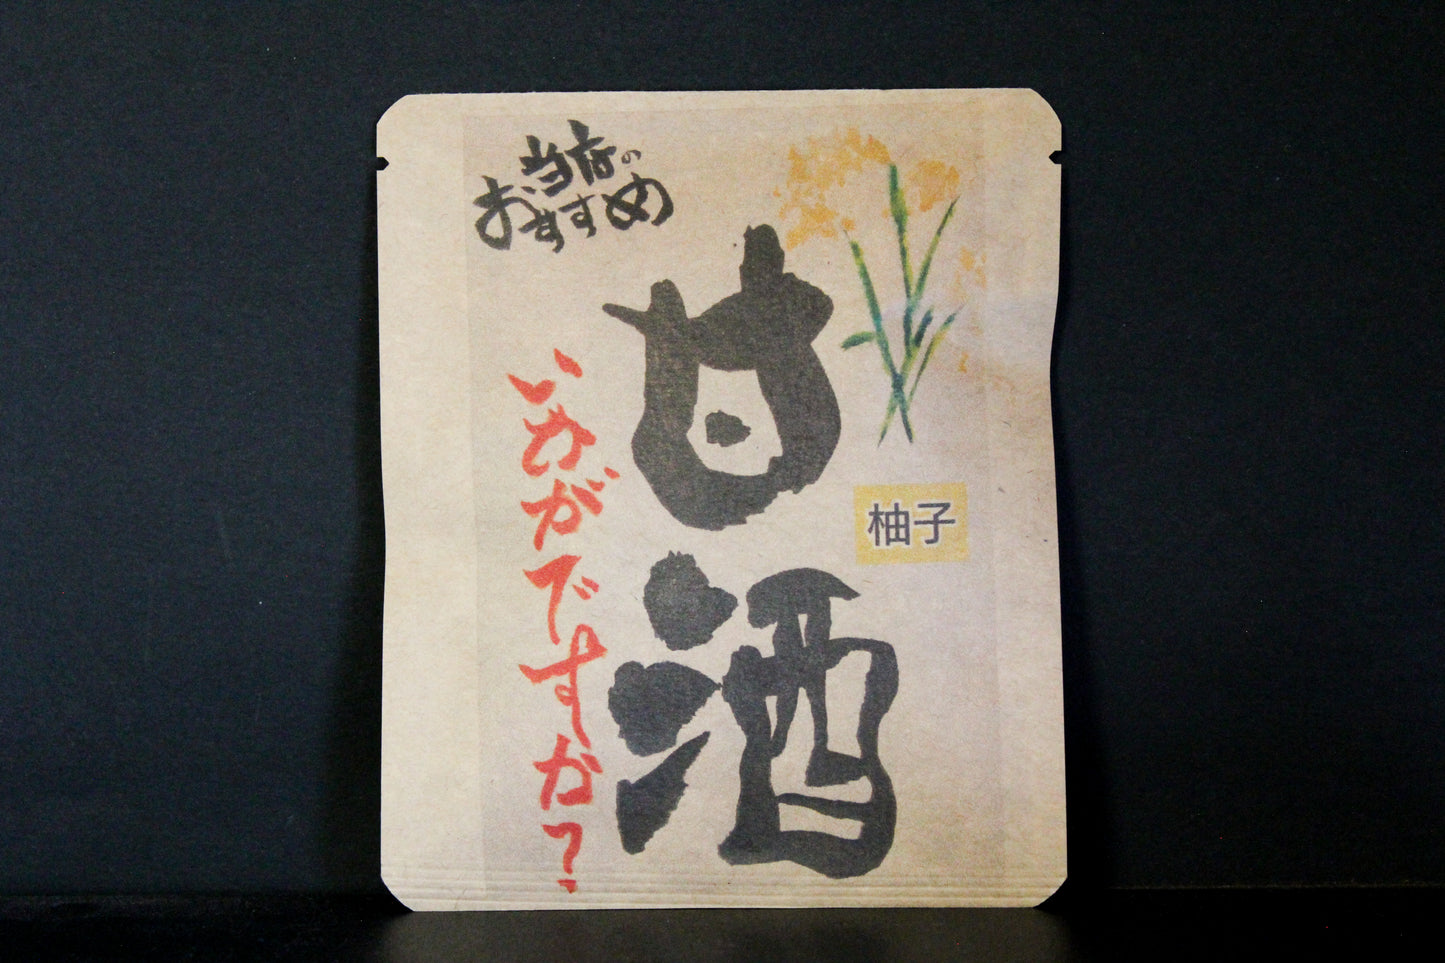 当店の
おすすめ
甘酒
柚子
いかがですか?